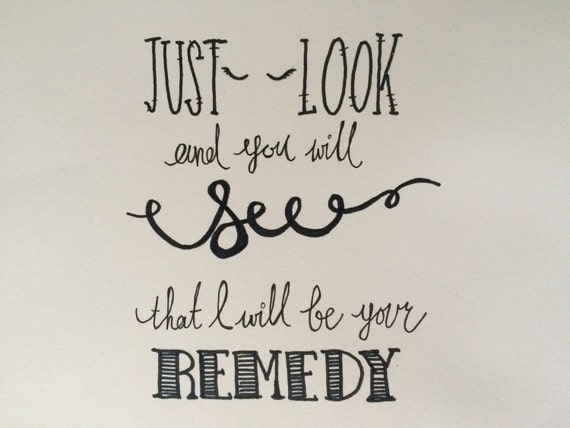 JUST LOOK
and you will
See
that I will be your
REMEDY